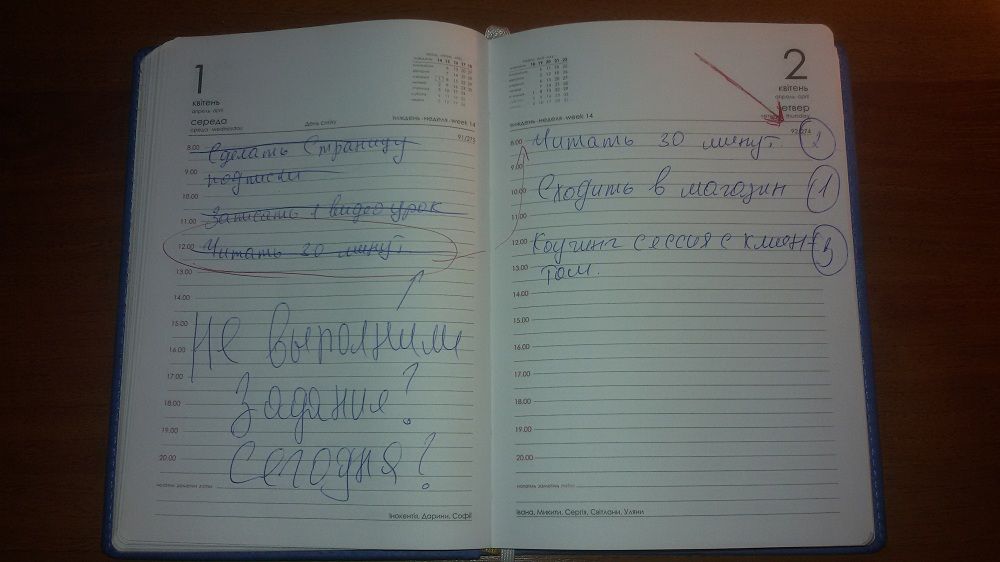 1
квітень
апрель april
середа
среда wednesday
День сміху
тиждень·неделя·week 14
14 15 16 17 18
91/275
8.00
Сделать Страницу
9.00
подписки
10.00
Записать 1 видео урок
11.00
12.00
Читать 30 минут
13.00
14.00
15.00
Не выполнили
16.00
17.00
Задание?
18.00
19.00
Сегодня?
20.00
нотатки заметки notes
Інокентія, Дарини, Софії
2
квітень
апрель april
четвер
thursday
тиждень·неделя·week 14
92/274
8.00
Читать 30 минут. 2
9.00
10.00
Сходить в магазин 1
11.00
12.00
Коучинг сессия с клиен- 3
13.00
том.
14.00
15.00
16.00
17.00
18.00
19.00
20.00
нотатки заметки notes
Івана, Микити, Сергія, Світлани, Уляни